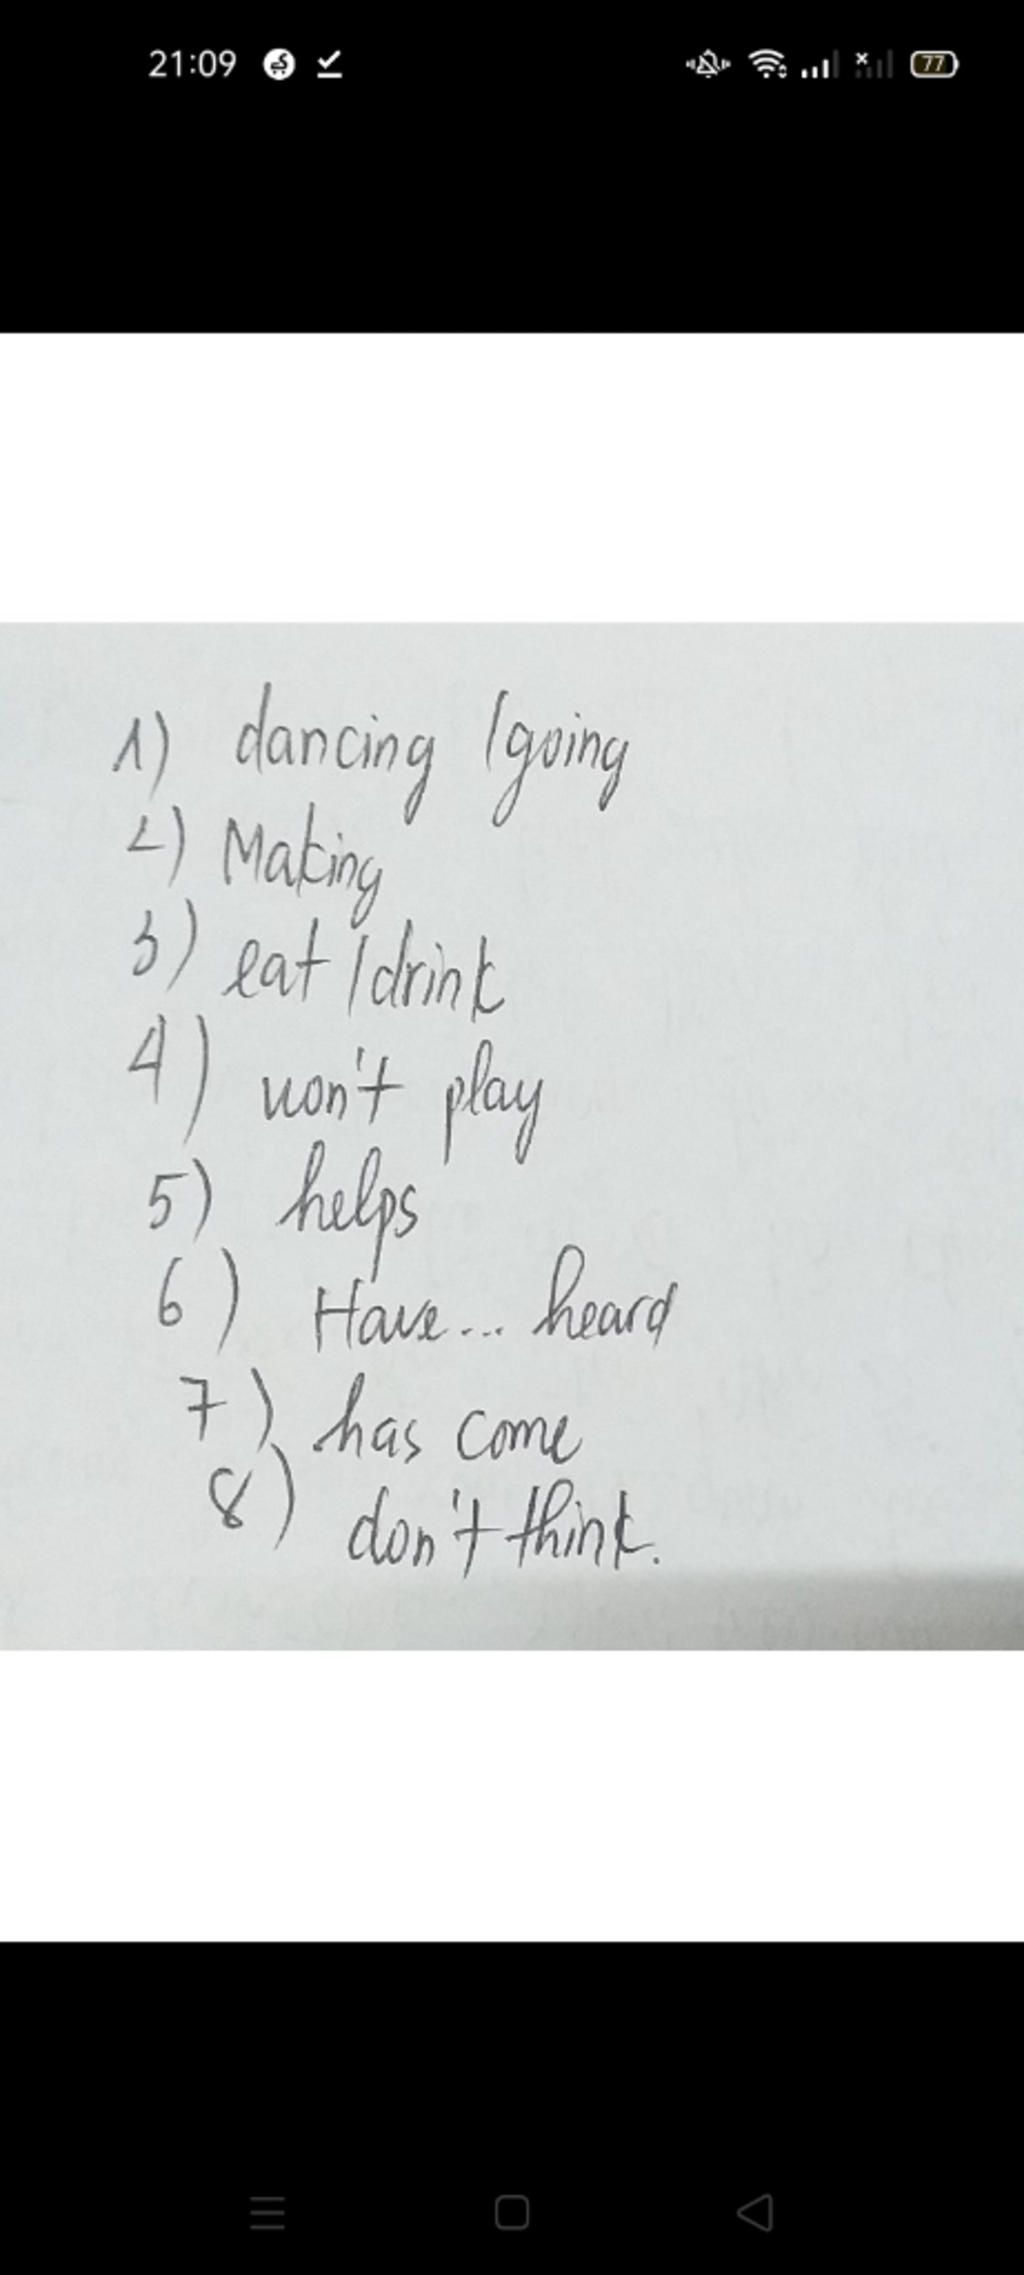 21:09 77
1) dancing / going
2) Making
3) eat / drink
4) won't play
5) helps
6) Have... heard
7) has come
8) don't think.